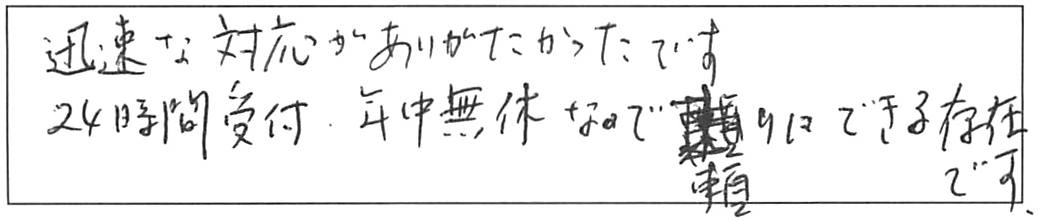 迅速な対応がありがたかったです
24時間受付.年中無休なので頼りにできる存在
です.